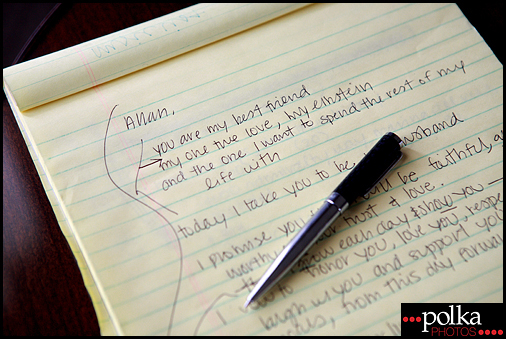 Allan,
you are my best friend
my one true love, my einstein
and the one I want to spend the rest of my
life with
today I take you to be husband
I promise you be faithful, a
worthy trust & love.
each day & show you
to honor you, love you, respe
laugh w/ you and support you
from this day forwar
polka
PHOTOS